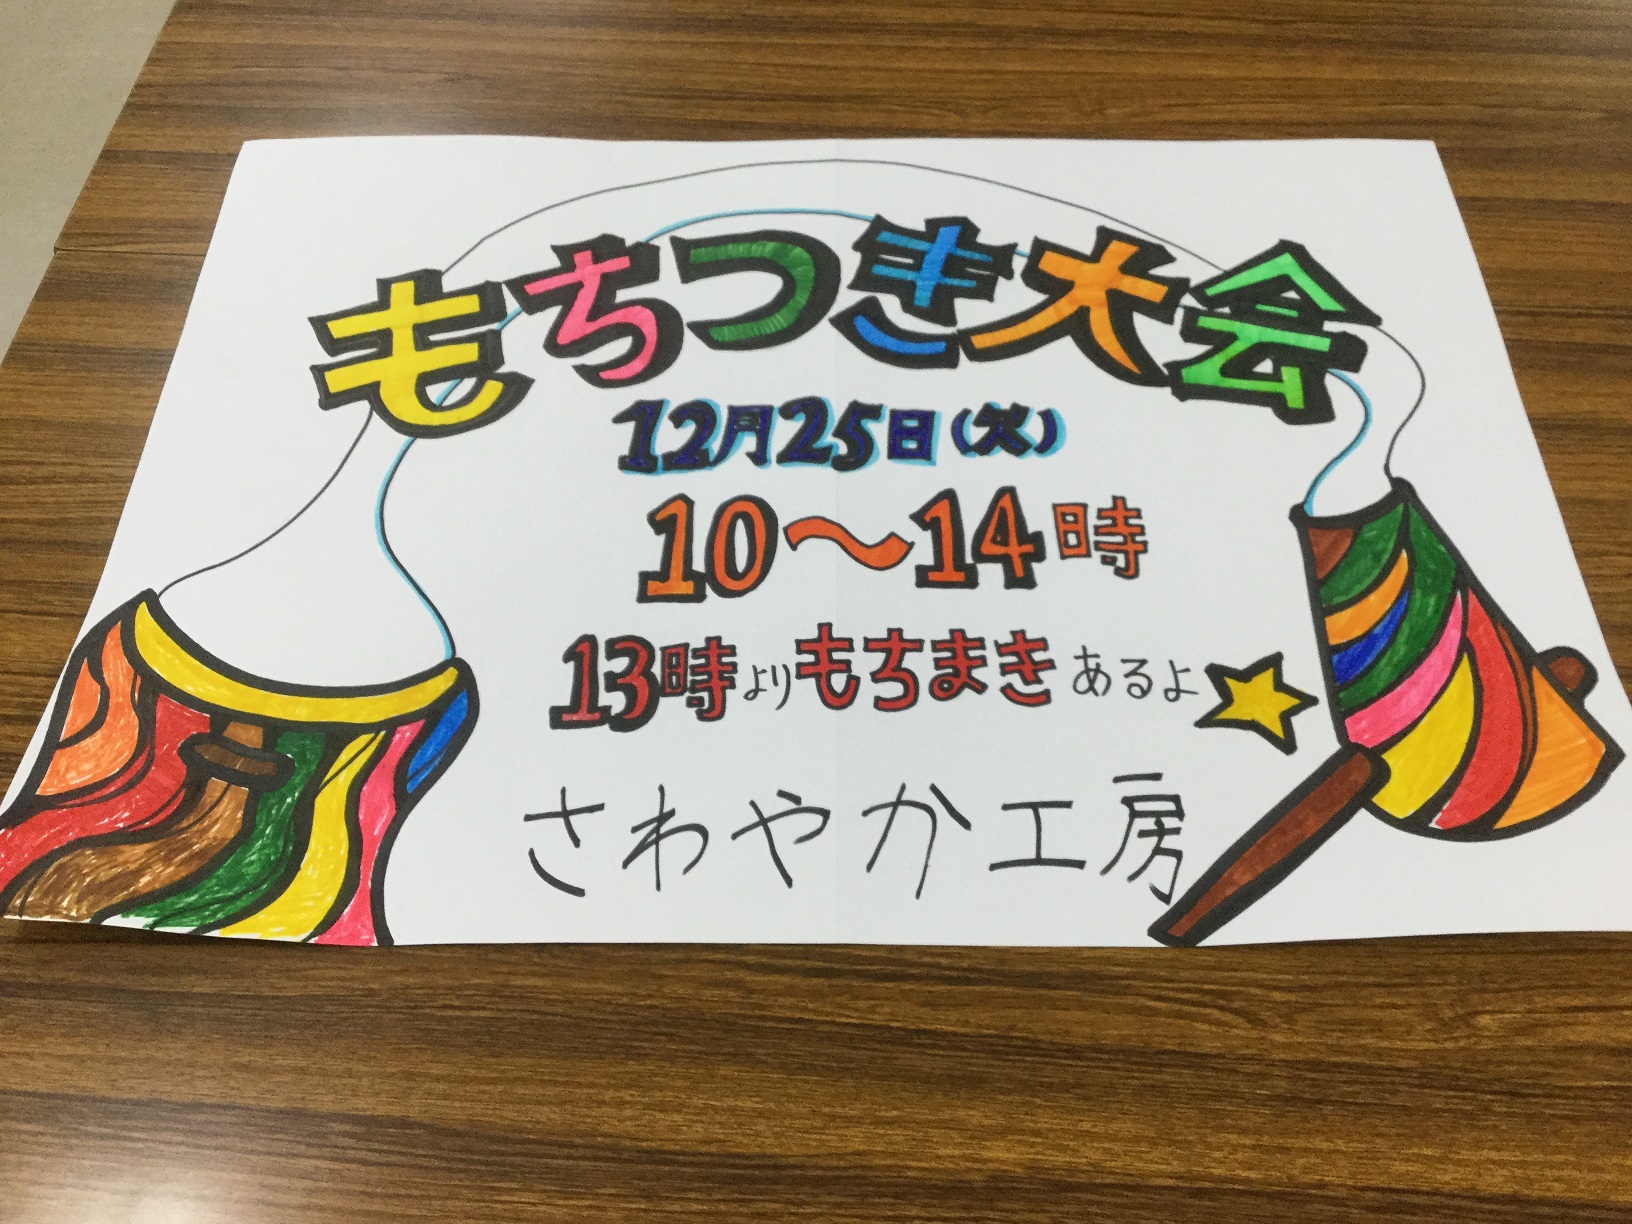 もちつき大会
12月25日(火)
10～14時
13時よりもちまきあるよ
さわやか工房